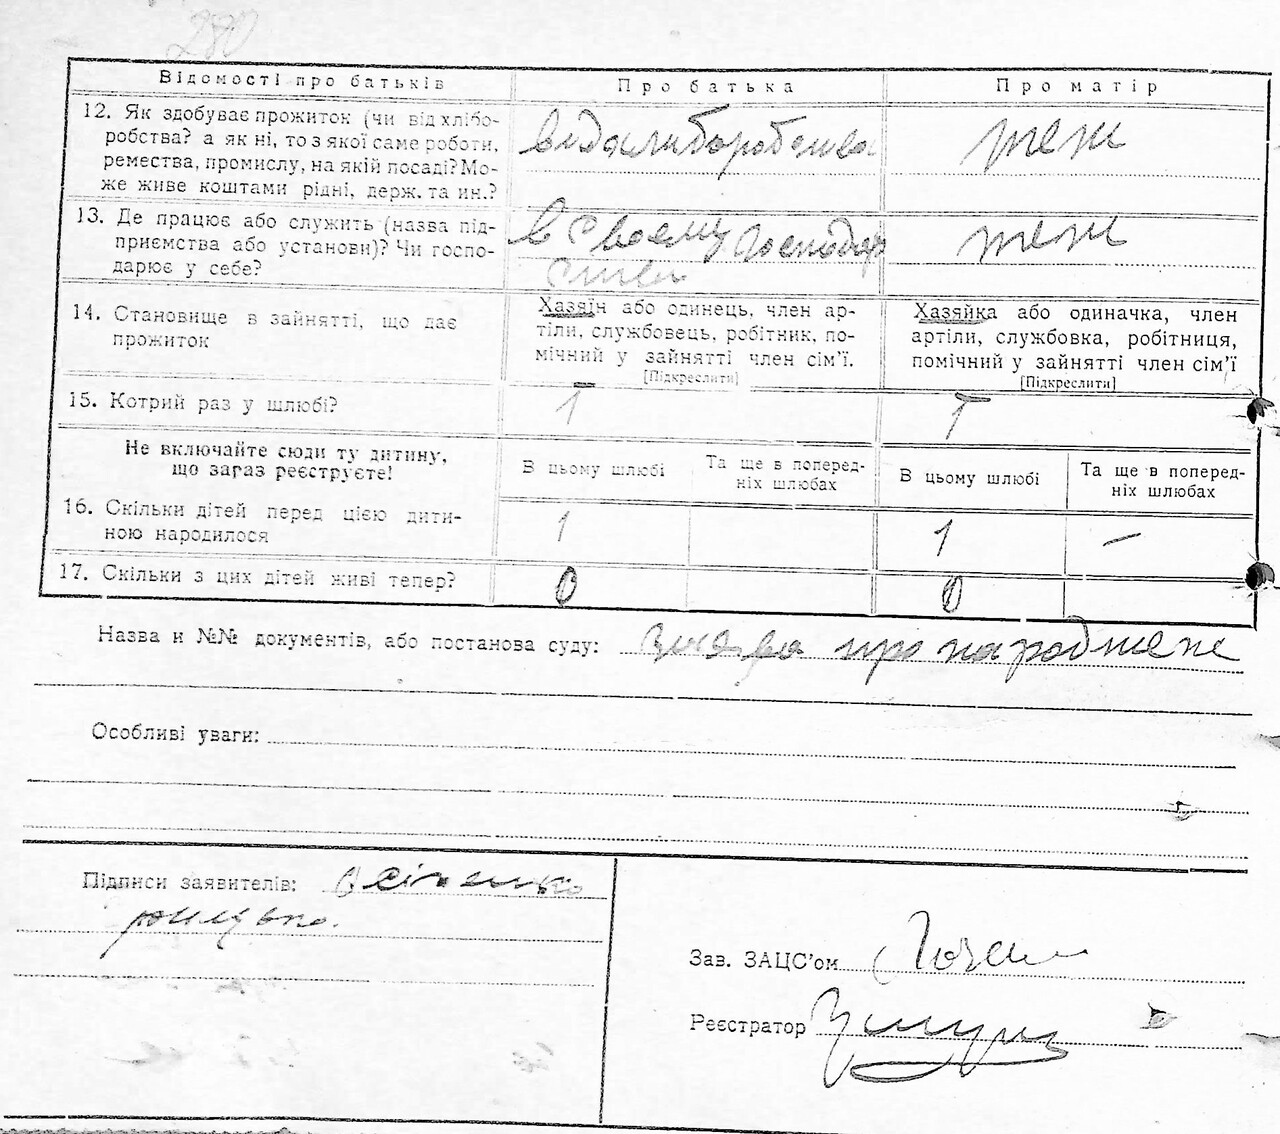 280
Відомості про батьків Про батька Про матір
12. Як здобуває прожиток (чи від хлібо-
робства? а як ні, то з якої саме роботи,
ремества, промислу, на якій посаді? Мо-
же живе коштами рідні, держ. та ин.?
від хліборобства теж
13. Де працює або служить (назва під-
приємства або установи)? Чи госпо-
дарює у себе?
в своему господар
стві
теж
14. Становище в зайнятті, що дає
прожиток
Хазяїн або одинець, член ар-
тіли, службовець, робітник, по-
мічний у зайнятті член сім'ї.
[Підкреслити]
Хазяйка або одиначка, член
артіли, службовка, робітниця,
помічний у зайнятті член сім'ї
[Підкреслити]
15. Котрий раз у шлюбі? 1 1
Не включайте сюди ту дитину,
що зараз реєструєте!
В цьому шлюбі
Та ще в поперед-
ніх шлюбах
В цьому шлюбі
Та ще в поперед-
ніх шлюбах
16. Скільки дітей перед цією дити-
ною народилося
1 1 —
17. Скільки з цих дітей живі тепер? 0 0
Назва и №№ документів, або постанова суду: заява про народжене
Особливі уваги:
Підписи заявителів: Осіпенко
Зав. ЗАЦС'ом
Реєстратор